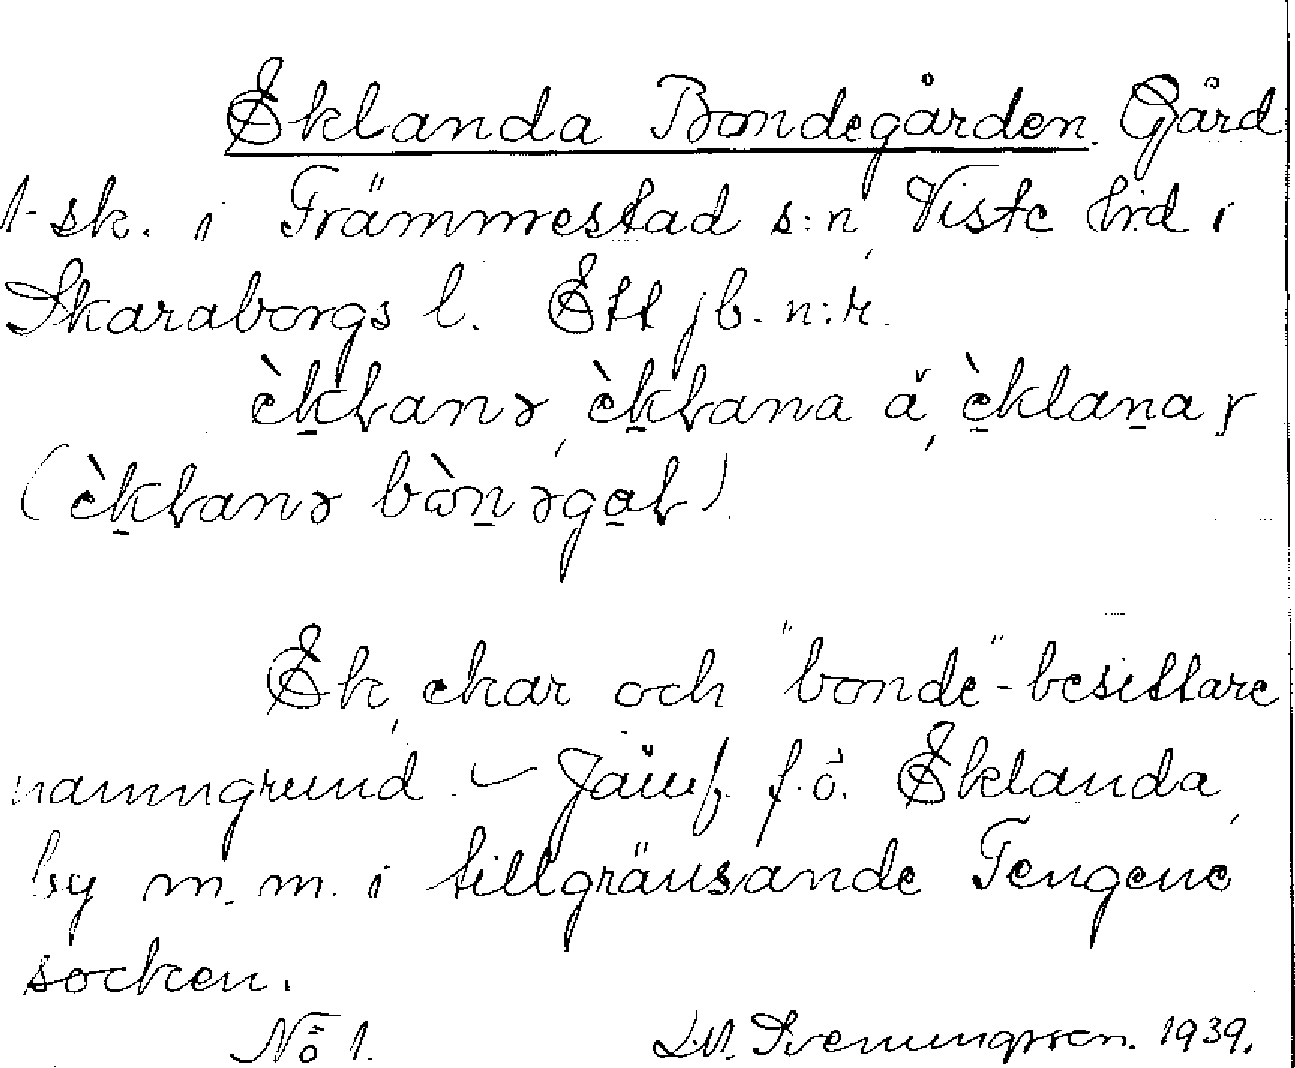 Eklanda Bondegården. Gård
1 sk. i Främmestad s:n, Viste hrd i
Skaraborgs l. Ett jb. n:r.
èkɫanɘ, èkɫana å, èklanaɼ
(èkɫanɘ bònɘgaɫ).
Ek, ekar och "bonde"-besittare
namngrund. – Jämf. f.ö. Eklanda,
by m. m. i tillgränsande Tengene
socken.
No 1. Svenungsson. 1939.